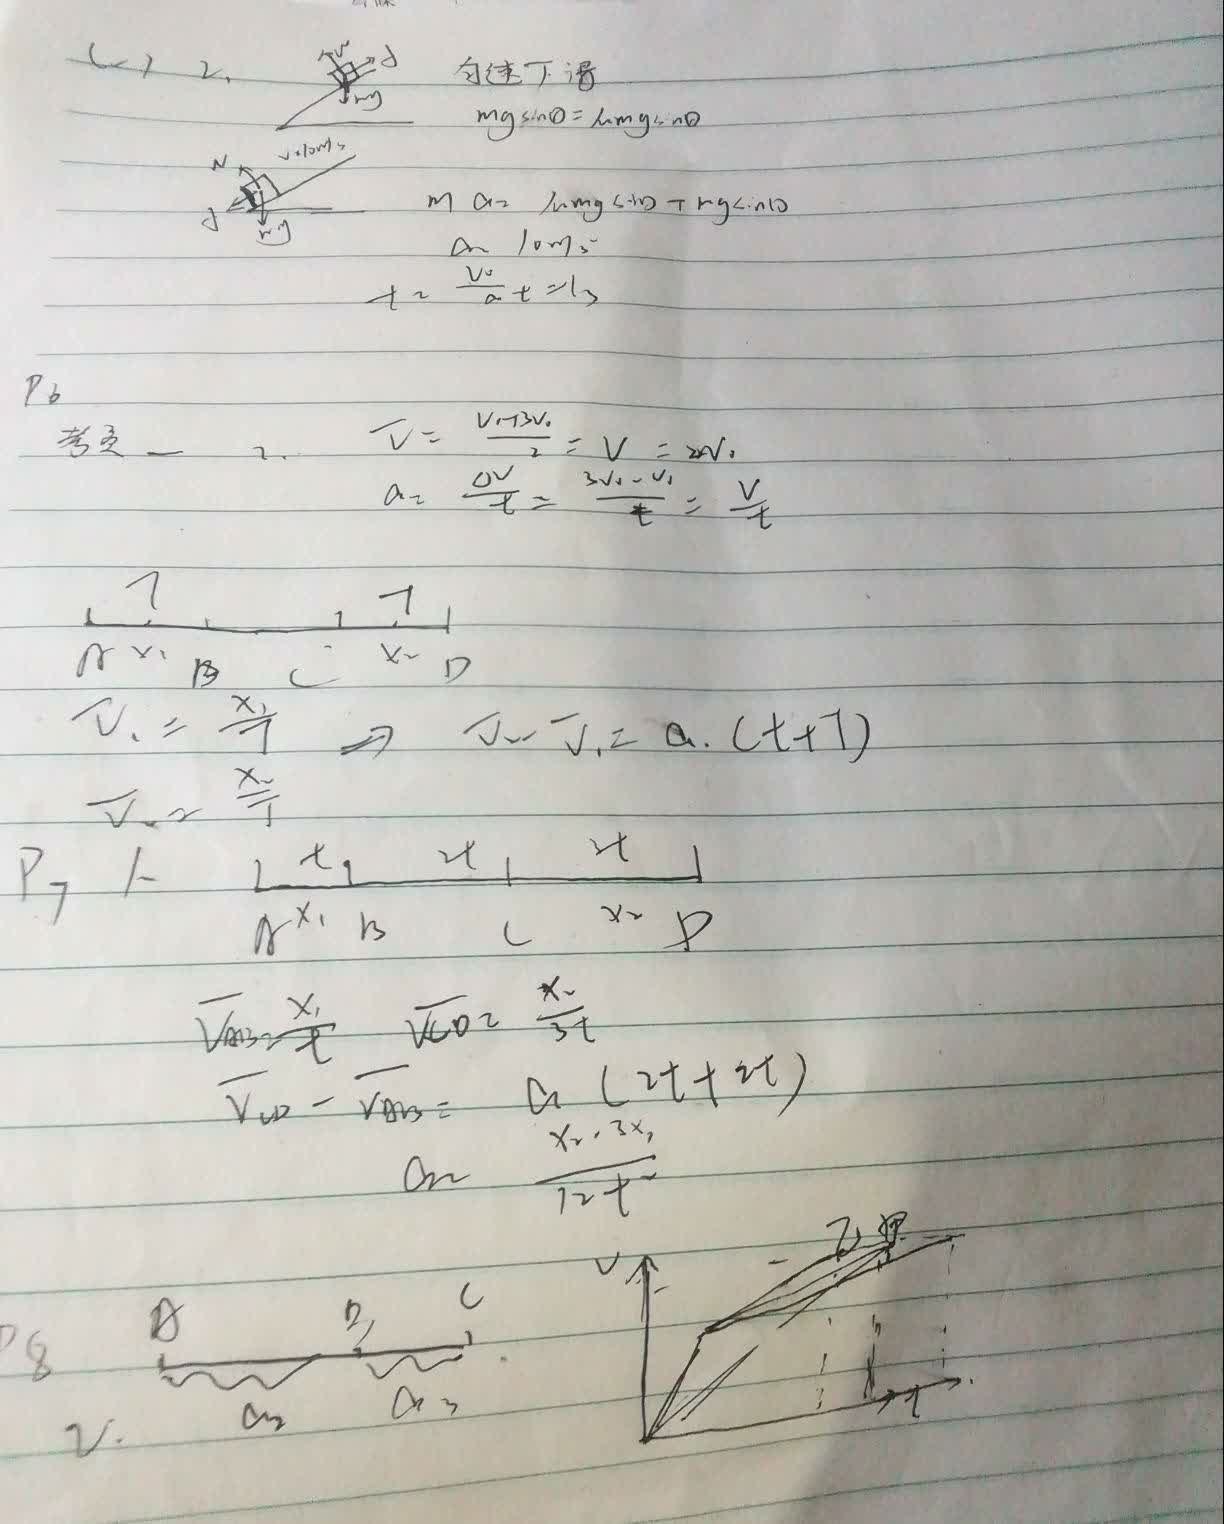 (一) 2.
N f mg
匀速下滑
mgsinθ=μmgsinθ
N v=10m/s f mg
ma= μmgsinθ+mgsinθ
a= 10m/s²
t= V₀/a t=1s
P6
考点一 2. V̄= (V₀+3V₀)/2 = V = 2V₀
a= ΔV/t = (3V₀-V₀)/t = V/t
T T
A x₁ B C x₂ D
V̄₁= x₁/T ⇒ V̄₂-V̄₁= a.(t+T)
V̄₂= x₂/T
P7 1. t 2t 3t
A x₁ B C x₂ D
V̄AB= x₁/t V̄CD= x₂/3t
V̄CD - V̄AB= a (2t+2t)
a= (x₂-3x₁)/12t²
P8 A B C
a₂ a₃
2.
V 乙 甲 t